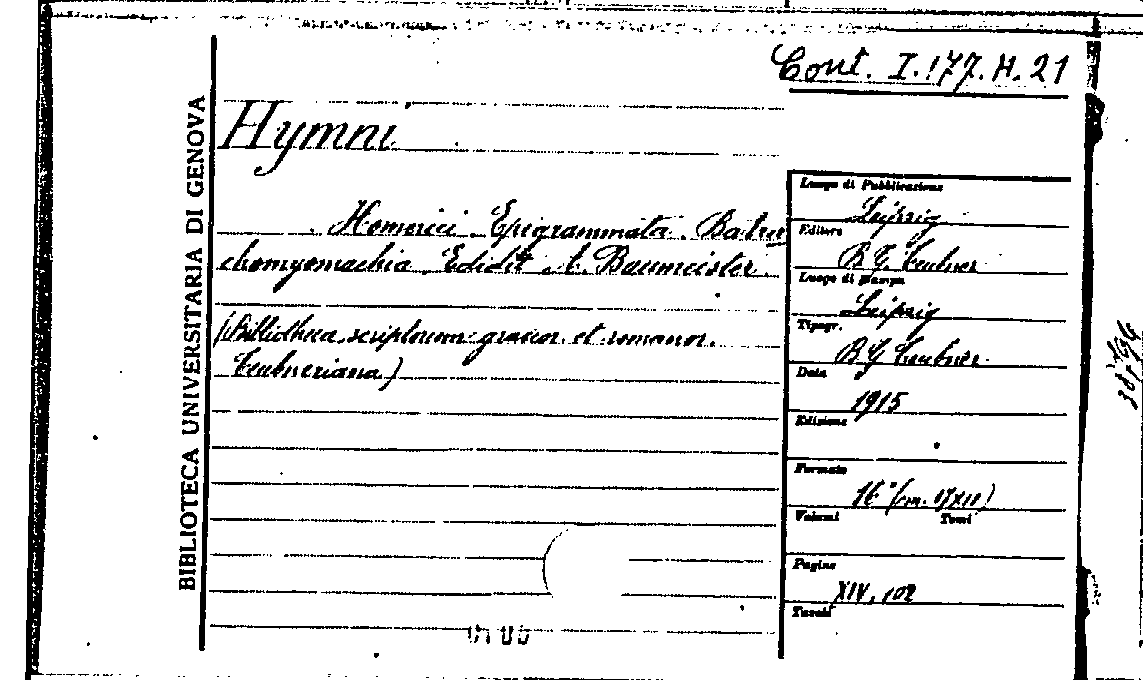 Cont. I.177.H.21
BIBLIOTECA UNIVERSITARIA DI GENOVA
Hymni
Homerici. Epigrammata. Batra
chomyomachia. Edidit A. Baumeister.
(Bibliotheca scriptorum graecor. et romanor.
Teubneriana)
Luogo di Pubblicazione
Leipzig
Editore
B.G. Teubner
Luogo di stampa
Leipzig
Tipogr.
B G Teubner
Data
1915
Edizione
Formato
16° (cm. 17x11)
Volumi Tomi
Pagine
XIV, 102
Tavole